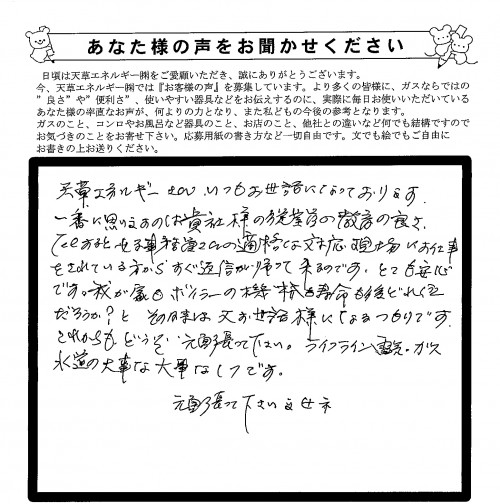 あなた様の声をお聞かせください
日頃は天草エネルギー㈱をご愛顧いただき、誠にありがとうございます。
今、天草エネルギー㈱では『お客様の声』を募集しています。より多くの皆様に、ガスならではの
”良さ”や”便利さ”、使いやすい器具などをお伝えするのに、実際に毎日お使いいただいている
あなた様の率直なお声が、何よりの力となり、また私どもの今後の参考となります。
ガスのこと、コンロやお風呂など器具のこと、お店のこと、他社との違いなど何でも結構ですので
お気づきのことをお寄せ下さい。応募用紙の書き方など一切自由です。文でも絵でもご自由に
お書きの上お送りください。
天草エネルギーさんいつもお世話になっております。
一番に思いますのは貴社様の従業員の教育の良さ、
Telすると、事務員さんの適格な対応、現場にお仕事
をされている方からすぐ返信が帰って来るのです。とても安心
です。我が家もボイラーの機械も寿命も後どれ位
だろうか?と その時は又お世話様になるつもりです。
これからも、どうぞ、元頑張って下さい。ライフライン電気・ガス
水道の大事な大事な1つです。
頑張って下さいませネ